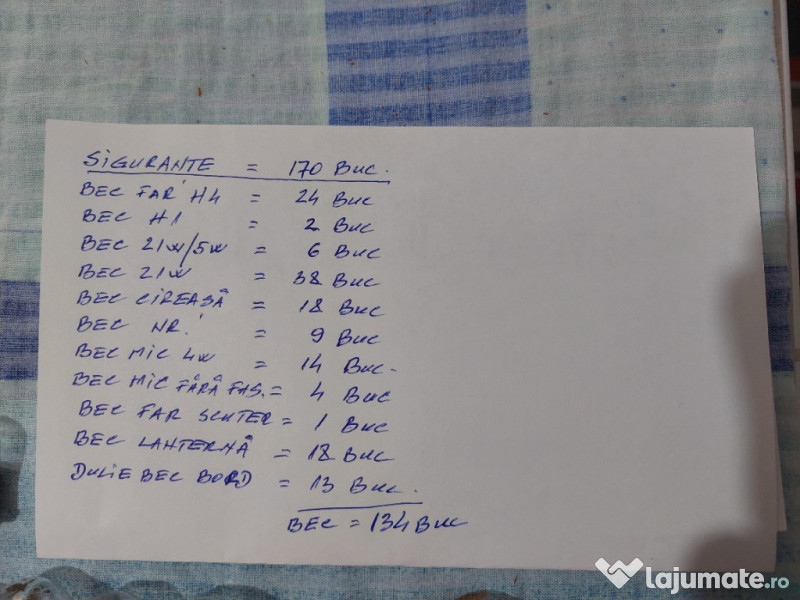 SIGURANTE = 170 BUC.
BEC FAR H4 = 24 BUC
BEC H1 = 2 BUC
BEC 21W/5W = 6 BUC
BEC 21W = 38 BUC
BEC CIREASĂ = 18 BUC
BEC NR. = 9 BUC
BEC MIC 4W = 14 BUC.
BEC MIC FĂRĂ FAS. = 4 BUC
BEC FAR SCUTER = 1 BUC
BEC LANTERNĂ = 18 BUC
DULIE BEC BORD = 13 BUC.
BEC = 134 BUC
lajumate.ro